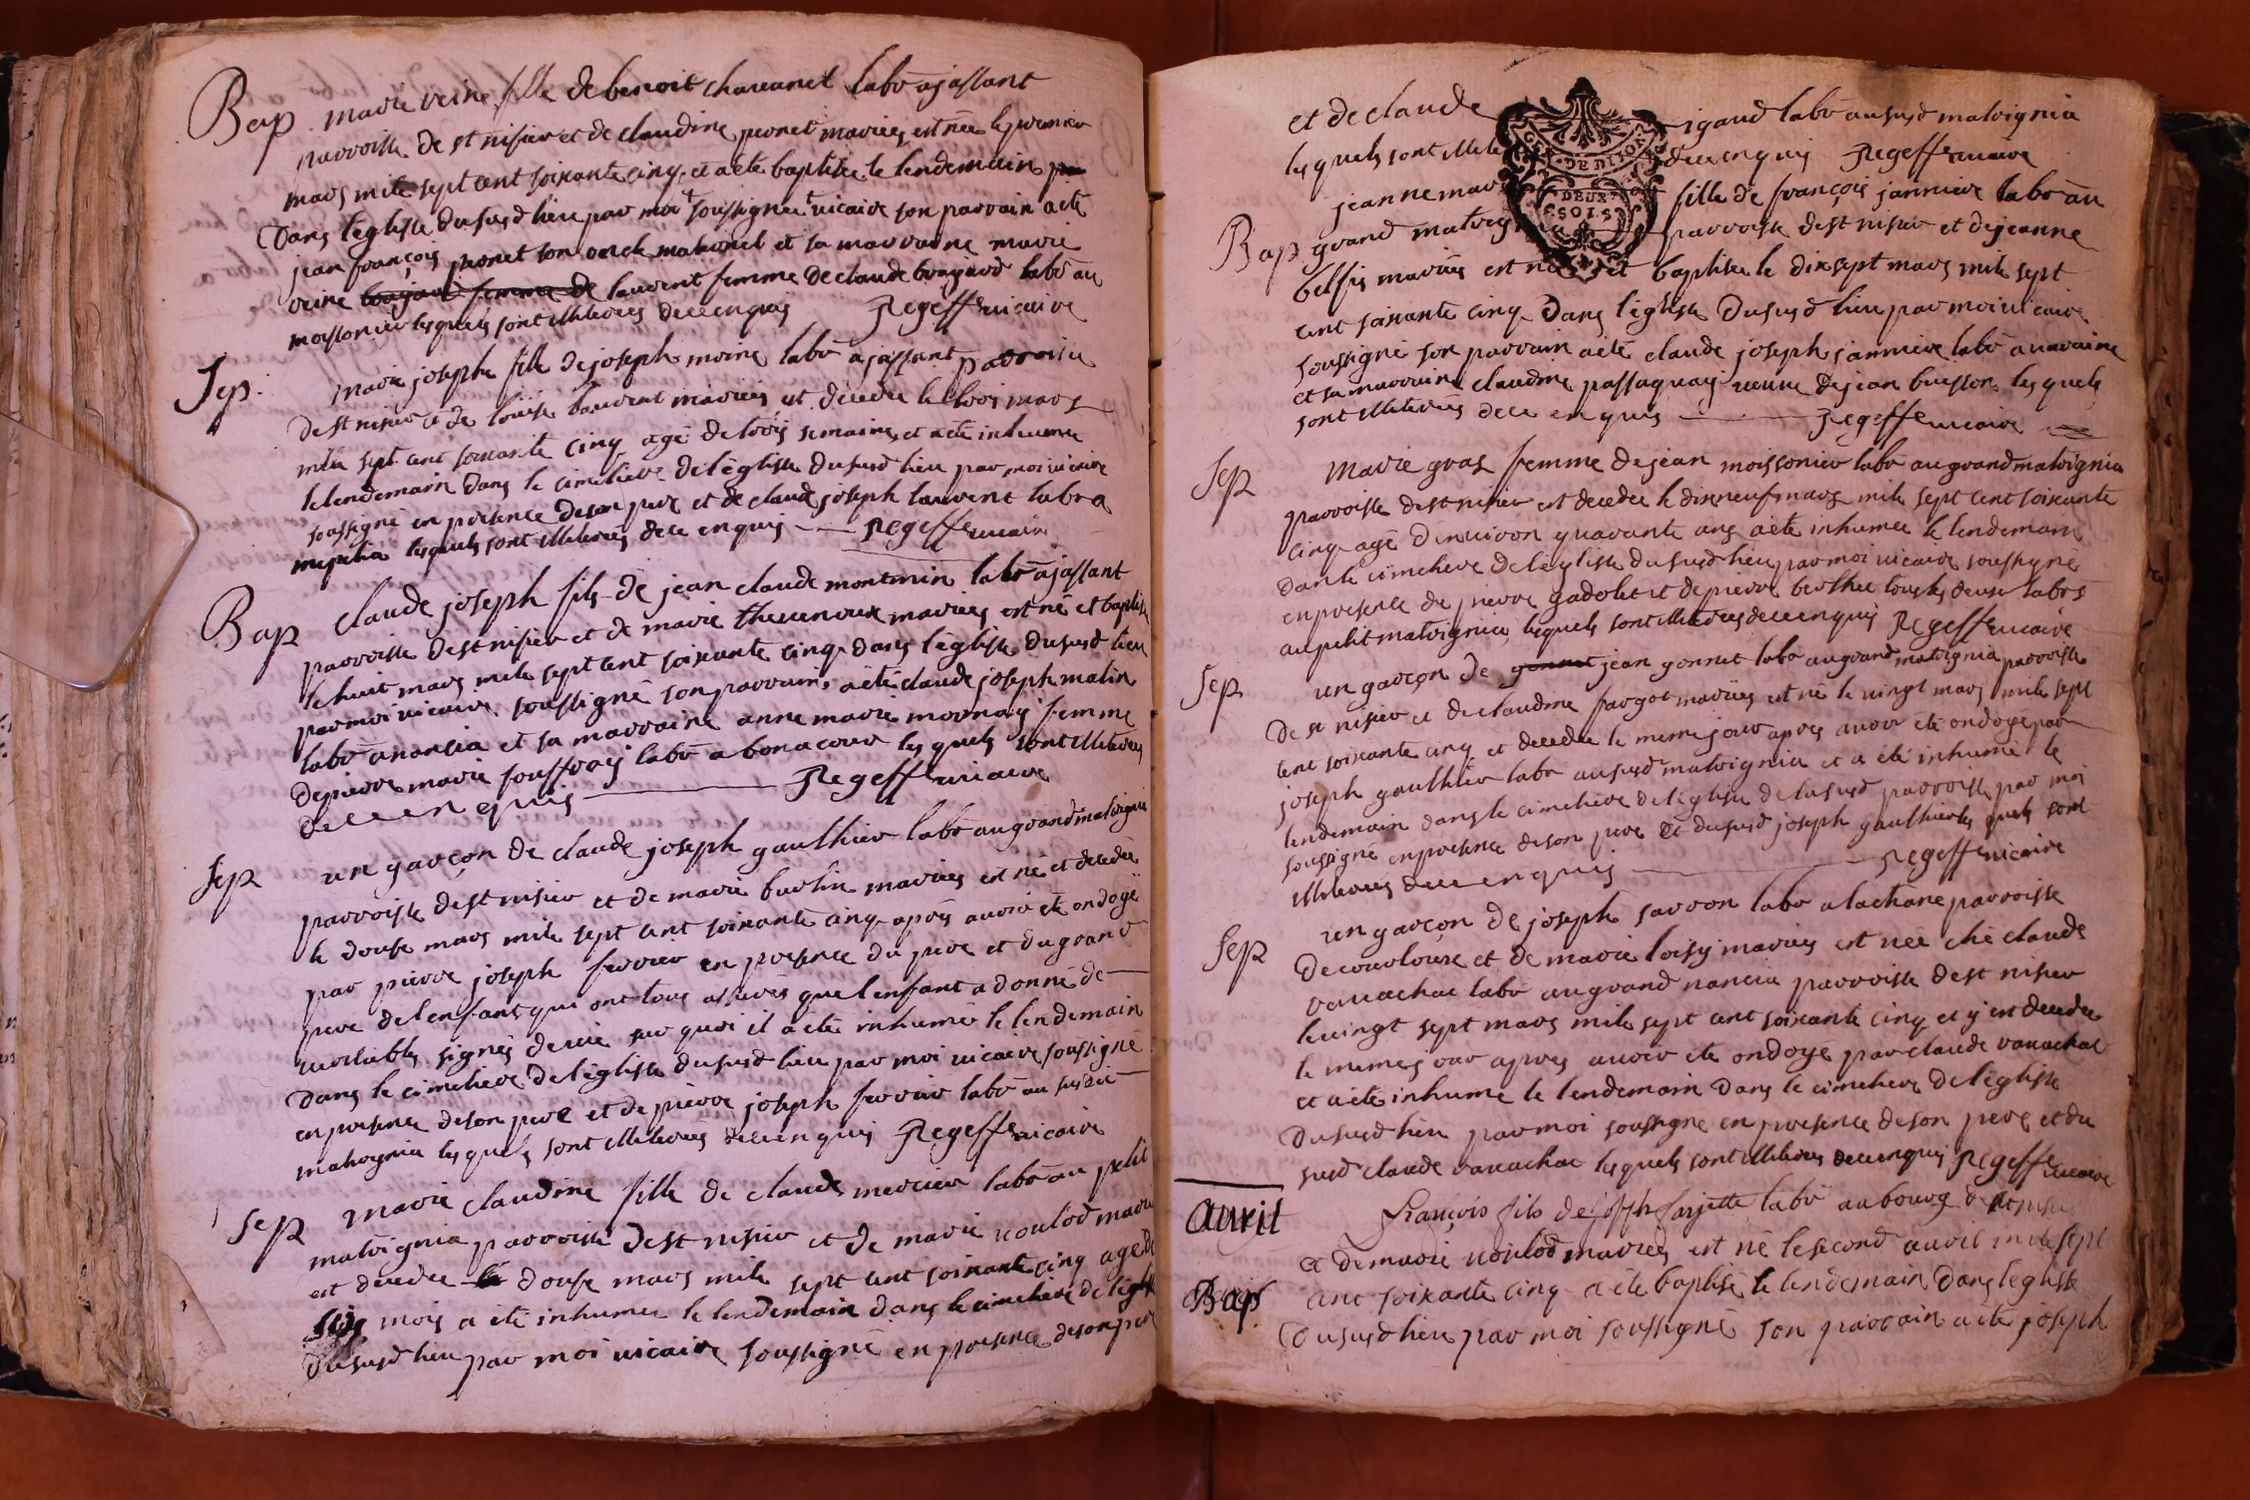 Bap marie reine fille de benoit chavanet labo ajassant
parroisse de st nisier et de claudine peonet mariés est née le premier
mars mile sept cent soixante cinq et a eté baptisée le lendemain
dans l'eglise dususd lieu par moi soussigné vicaire son parrain a eté
jean françois peonet son oncle maternel et sa marraine marie
reine laurent femme de claude borjard labo au
moissonier lesquels sont illiterés de ce enquis Regeffe vicaire
Sep. marie josephe fille de joseph moine labo ajassant parroisse
de st nisier et de louise laurent mariés est decedée le trois mars
mile sept cent soixante cinq agé de trois semaines et a été inhumée
le lendemain dans le cimetiere de l'eglise dususd lieu par moi vicaire
soussigné en presence de son pere et de claude joseph laurent labo a
lesquels sont illiterés de ce enquis Regeffe vicaire
Bap claude joseph fils de jean claude montmin labo ajassant
parroisse de st nisier et de marie thevenoux mariés est né et baptisé
le huit mars mile sept cent soixante cinq dans l'eglise dususd lieu
par moi vicaire soussigné son parrain a eté claude joseph malin
labo anancia et sa marraine anne marie mornay femme
de pierre marie souffray labo a bonacour lesquels sont illiterés
de ce enquis Regeffe vicaire
Sep un garçon de claude joseph gaulthier labo au grand matoignia
parroisse de st nisier et de marie burlin mariés est né et decedée
le douse mars mile sept cent soixante cinq après avoir eté ondoyé
par pierre joseph ferrier en presence du pere et du grand
pere de l'enfant qui ont tous assurés que l'enfant a donné de
veritables signes de vie sur quoi il a eté inhumé le lendemain
dans le cimetiere de l'eglise dususd lieu par moi vicaire soussigné
en presence de son pere et de pierre joseph ferrier labo au susdit
matoignia lesquels sont illiterés de ce enquis Regeffe vicaire
Sep marie claudine fille de claude mercier labo au petit
matoignia parroisse de st nisier et de marie voulod mariés
est decedée le douse mars mile sept cent soixante cinq agé de
six mois a été inhumée le lendemain dans le cimetiere de l'eglise
dususd lieu par moi vicaire soussigné en presence de son pere
et de claude rigaud labo aususd matoignia
lesquels sont illite de ce enquis Regeffe vicaire
jeanne mar fille de françois jannier labo au
Bap grand matoig parroisse de st nisier et de jeanne
belfis mariés est née et baptisée le dixsept mars mile sept
cent soixante cinq dans l'eglise dususd lieu par moi vicaire
soussigné son parrain a eté claude joseph jannier labo
et sa marraine claudine passaquay veuve de jean buisson lesquels
sont illiterés de ce enquis Regeffe vicaire
Sep marie gras femme de jean moissonier labo au grand matoignia
parroisse de st nisier est decedée le dixneuf mars mile sept cent soixante
cinq agé d'environ quarante ans a eté inhumée le lendemain
dans le cimetiere de l'eglise dususd lieu par moi vicaire soussigné
en presence de pierre gadolet et de pierre berthet tous les deux labos
au petit matoignia lesquels sont illiterés de ce enquis Regeffe vicaire
Sep un garçon de gonnet jean gonnet labo au grand matoignia parroisse
de st nisier et de claudine fargot mariés est né le vingt mars mile sept
cent soixante cinq et decedée le meme jour apres avoir eté ondoyé par
joseph gaulthier labo aususd matoignia et a été inhumé le
lendemain dans le cimetiere de l'eglise de lasusd parroisse par moi
soussigné en presence de son pere et dususd joseph gaulthier lesquels sont
illiterés de ce enquis Regeffe vicaire
Sep un garçon de joseph sarron labo alachane parroisse
de courlouxe et de marie loisy mariés est née ché claude
vanachac labo au grand nancia parroisse de st nisier
le vingt sept mars mile sept cent soixante cinq et y est decedée
le meme jour apres avoir eté ondoyé par claude vanachac
et a eté inhumé le lendemain dans le cimetiere de l'eglise
dususd lieu par moi soussigné en presence de son pere et du
susd claude vanachac lesquels sont illiterés de ce enquis Regeffe vicaire
avril françois fils de joseph farjette labo au bourg de st nisier
et de marie voulod mariés est né le second avril mile sept
Bap cent soixante cinq a été baptisé le lendemain dans l'eglise
dususd lieu par moi soussigné son parrain a été joseph
GEN. DE DIJON
DEUX
SOLS